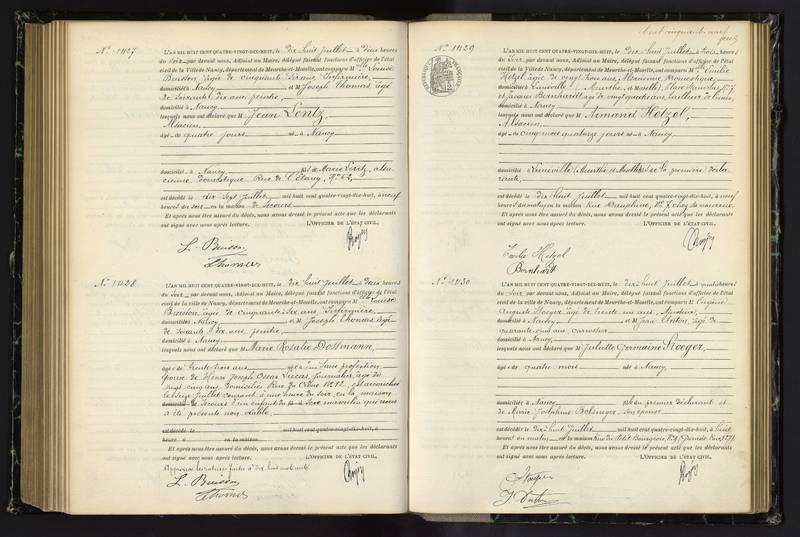 N° 1427
L'AN MIL HUIT CENT QUATRE-VINGT-DIX-HUIT, le dix huit Juillet à deux heures
du soir par devant nous, Adjoint au Maire, délégué faisant fonctions d'officier de l'état
civil de la Ville de Nancy, département de Meurthe-et-Moselle, ont comparu M Louise
Buisson, âgée de cinquante six ans, Infirmière,
domiciliée à Nancy et M Joseph Thomas âgé
de soixante dix ans, peintre,
domicilié à Nancy
lesquels nous ont déclaré que M Jean Lentz,
Alsacien,
âgé de quatre jours né à Nancy
domicilié à Nancy de Marie Lentz, alsa
cienne, Domestique Rue de l'Etang, N° 62,
est décédé le dix Sept Juillet mil huit cent quatre-vingt-dix-huit, à neuf
heures du soir en la maison de Secours
Et après nous être assuré du décès, nous avons dressé le présent acte que les déclarants
ont signé avec nous après lecture. L'OFFICIER DE L'ÉTAT CIVIL,
L. Buisson
Thomas
N° 1428
L'AN MIL HUIT CENT QUATRE-VINGT-DIX-HUIT, le dix huit Juillet à deux heures
du soir par devant nous, Adjoint au Maire, délégué faisant fonctions d'officier de l'état
civil de la ville de Nancy, département de Meurthe-et-Moselle, ont comparu M Louise
Buisson, âgée de cinquante six ans, Infirmière,
domiciliée à Nancy et M Joseph Thomas âgé
de soixante dix ans, peintre,
domicilié à Nancy
lesquels nous ont déclaré que M Marie Rosalie Dossmann,
âgée de trente trois ans née à sans profession,
épouse de Henri Joseph Oscar Lucas, Journalier, âgé de
vingt cinq ans, domiciliés Rue du Crosne N° 12, est accouchée
le seize Juillet courant à une heure du soir, en la maison
de Secours d'un enfant du sexe masculin qui nous
a été présenté non viable.
est décédé le mil huit cent quatre-vingt-dix-huit, à
heure en la maison
Et après nous être assuré du décès, nous avons dressé le présent acte que les déclarants
ont signé avec nous après lecture. L'OFFICIER DE L'ÉTAT CIVIL,
L. Buisson
Thomas
cent cinquante neuf
N° 1429
L'AN MIL HUIT CENT QUATRE-VINGT-DIX-HUIT, le dix huit Juillet à trois heures
du soir, par devant nous, Adjoint au Maire, délégué faisant fonctions d'officier de l'état
civil de la ville de Nancy, département de Meurthe-et-Moselle, ont comparu M Emilie
Hetzel, âgée de vingt trois ans, Alsacienne, Domestique,
domiciliée à Lunéville (Meurthe et Moselle), Place Stanislas N° 7,
et Jacques Bernhardt âgé de vingt quatre ans, tailleur de limes,
domicilié à Nancy
lesquels nous ont déclaré que M Armand Hetzel,
Alsacien,
âgé de cinq mois quatorze jours né à Nancy
domicilié à Lunéville (Meurthe et Moselle) de la première décla
rante,
est décédé le dix huit Juillet mil huit cent quatre-vingt-dix-huit, à neuf
heures du matin en la maison Rue Dauphine, N° 7, chez sa nourrice.
Et après nous être assuré du décès, nous avons dressé le présent acte que les déclarants
ont signé avec nous après lecture. L'OFFICIER DE L'ÉTAT CIVIL,
Emilie Hetzel
Bernhardt
N° 1430
L'AN MIL HUIT CENT QUATRE-VINGT-DIX-HUIT, le dix huit Juillet à quatre heures
du soir par devant nous, Adjoint au Maire, délégué faisant fonctions d'officier de l'état
civil de la ville de Nancy, département de Meurthe-et-Moselle, ont comparu M Eugène
Auguste Hoeger, âgé de trente un ans,
domicilié à Nancy et M Jean Anton, âgé de
quarante cinq ans, carrossier
domicilié à Nancy
lesquels nous ont déclaré que M Juliette Germaine Hoeger,
âgée de quatre mois née à Nancy,
domiciliée à Nancy du premier déclarant et
de Marie Joséphine Bélanger, son épouse
est décédé le dix huit Juillet mil huit cent quatre-vingt-dix-huit, à huit
heures du matin en la maison Rue du Petit Bourgeois, N° 9,
Et après nous être assuré du décès, nous avons dressé le présent acte que les déclarants
ont signé avec nous après lecture. L'OFFICIER DE L'ÉTAT CIVIL,